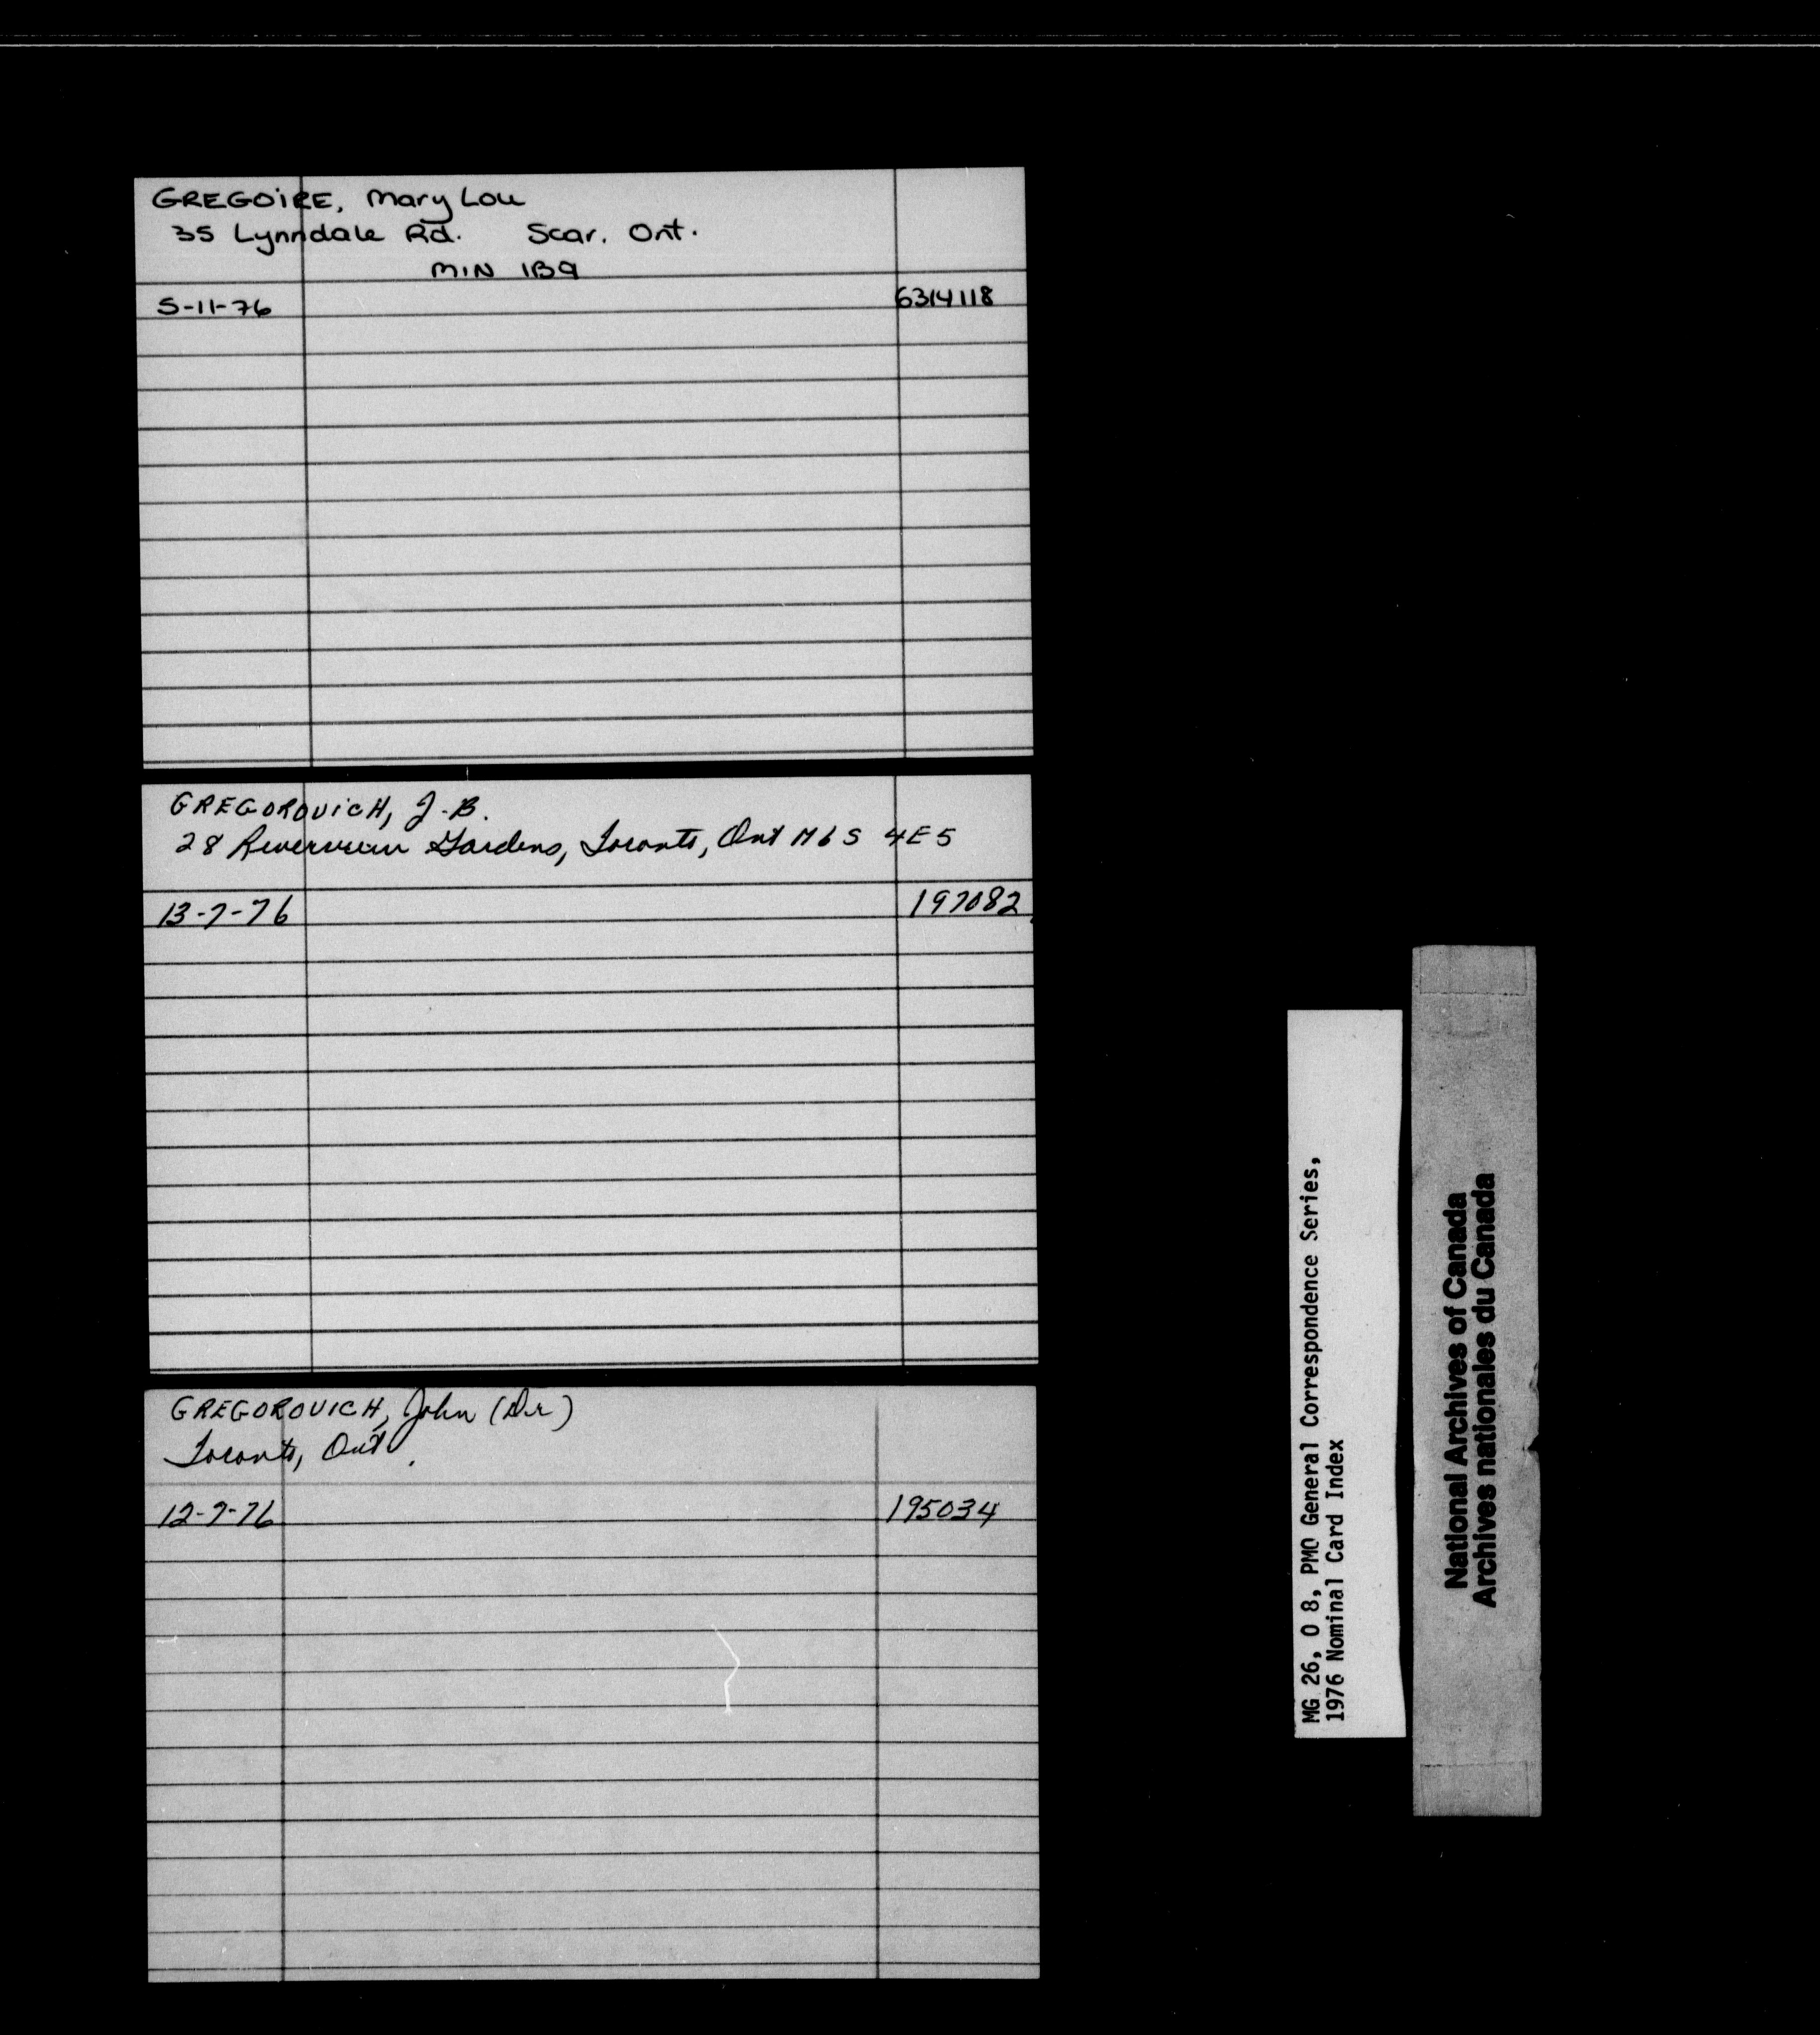 GREGOIRE, Mary Lou
35 Lynndale Rd. Scar. Ont.
M1N 1B9
5-11-76 6314118
GREGOROVICH, J.B.
28 Riverview Gardens, Toronto, Ont M6S 4E5
13-7-76 197082
GREGOROVICH, John (Dr)
Toronto, Ont.
12-7-76 195034
MG 26, O 8, PMO General Correspondence Series,
1976 Nominal Card Index
National Archives of Canada
Archives nationales du Canada